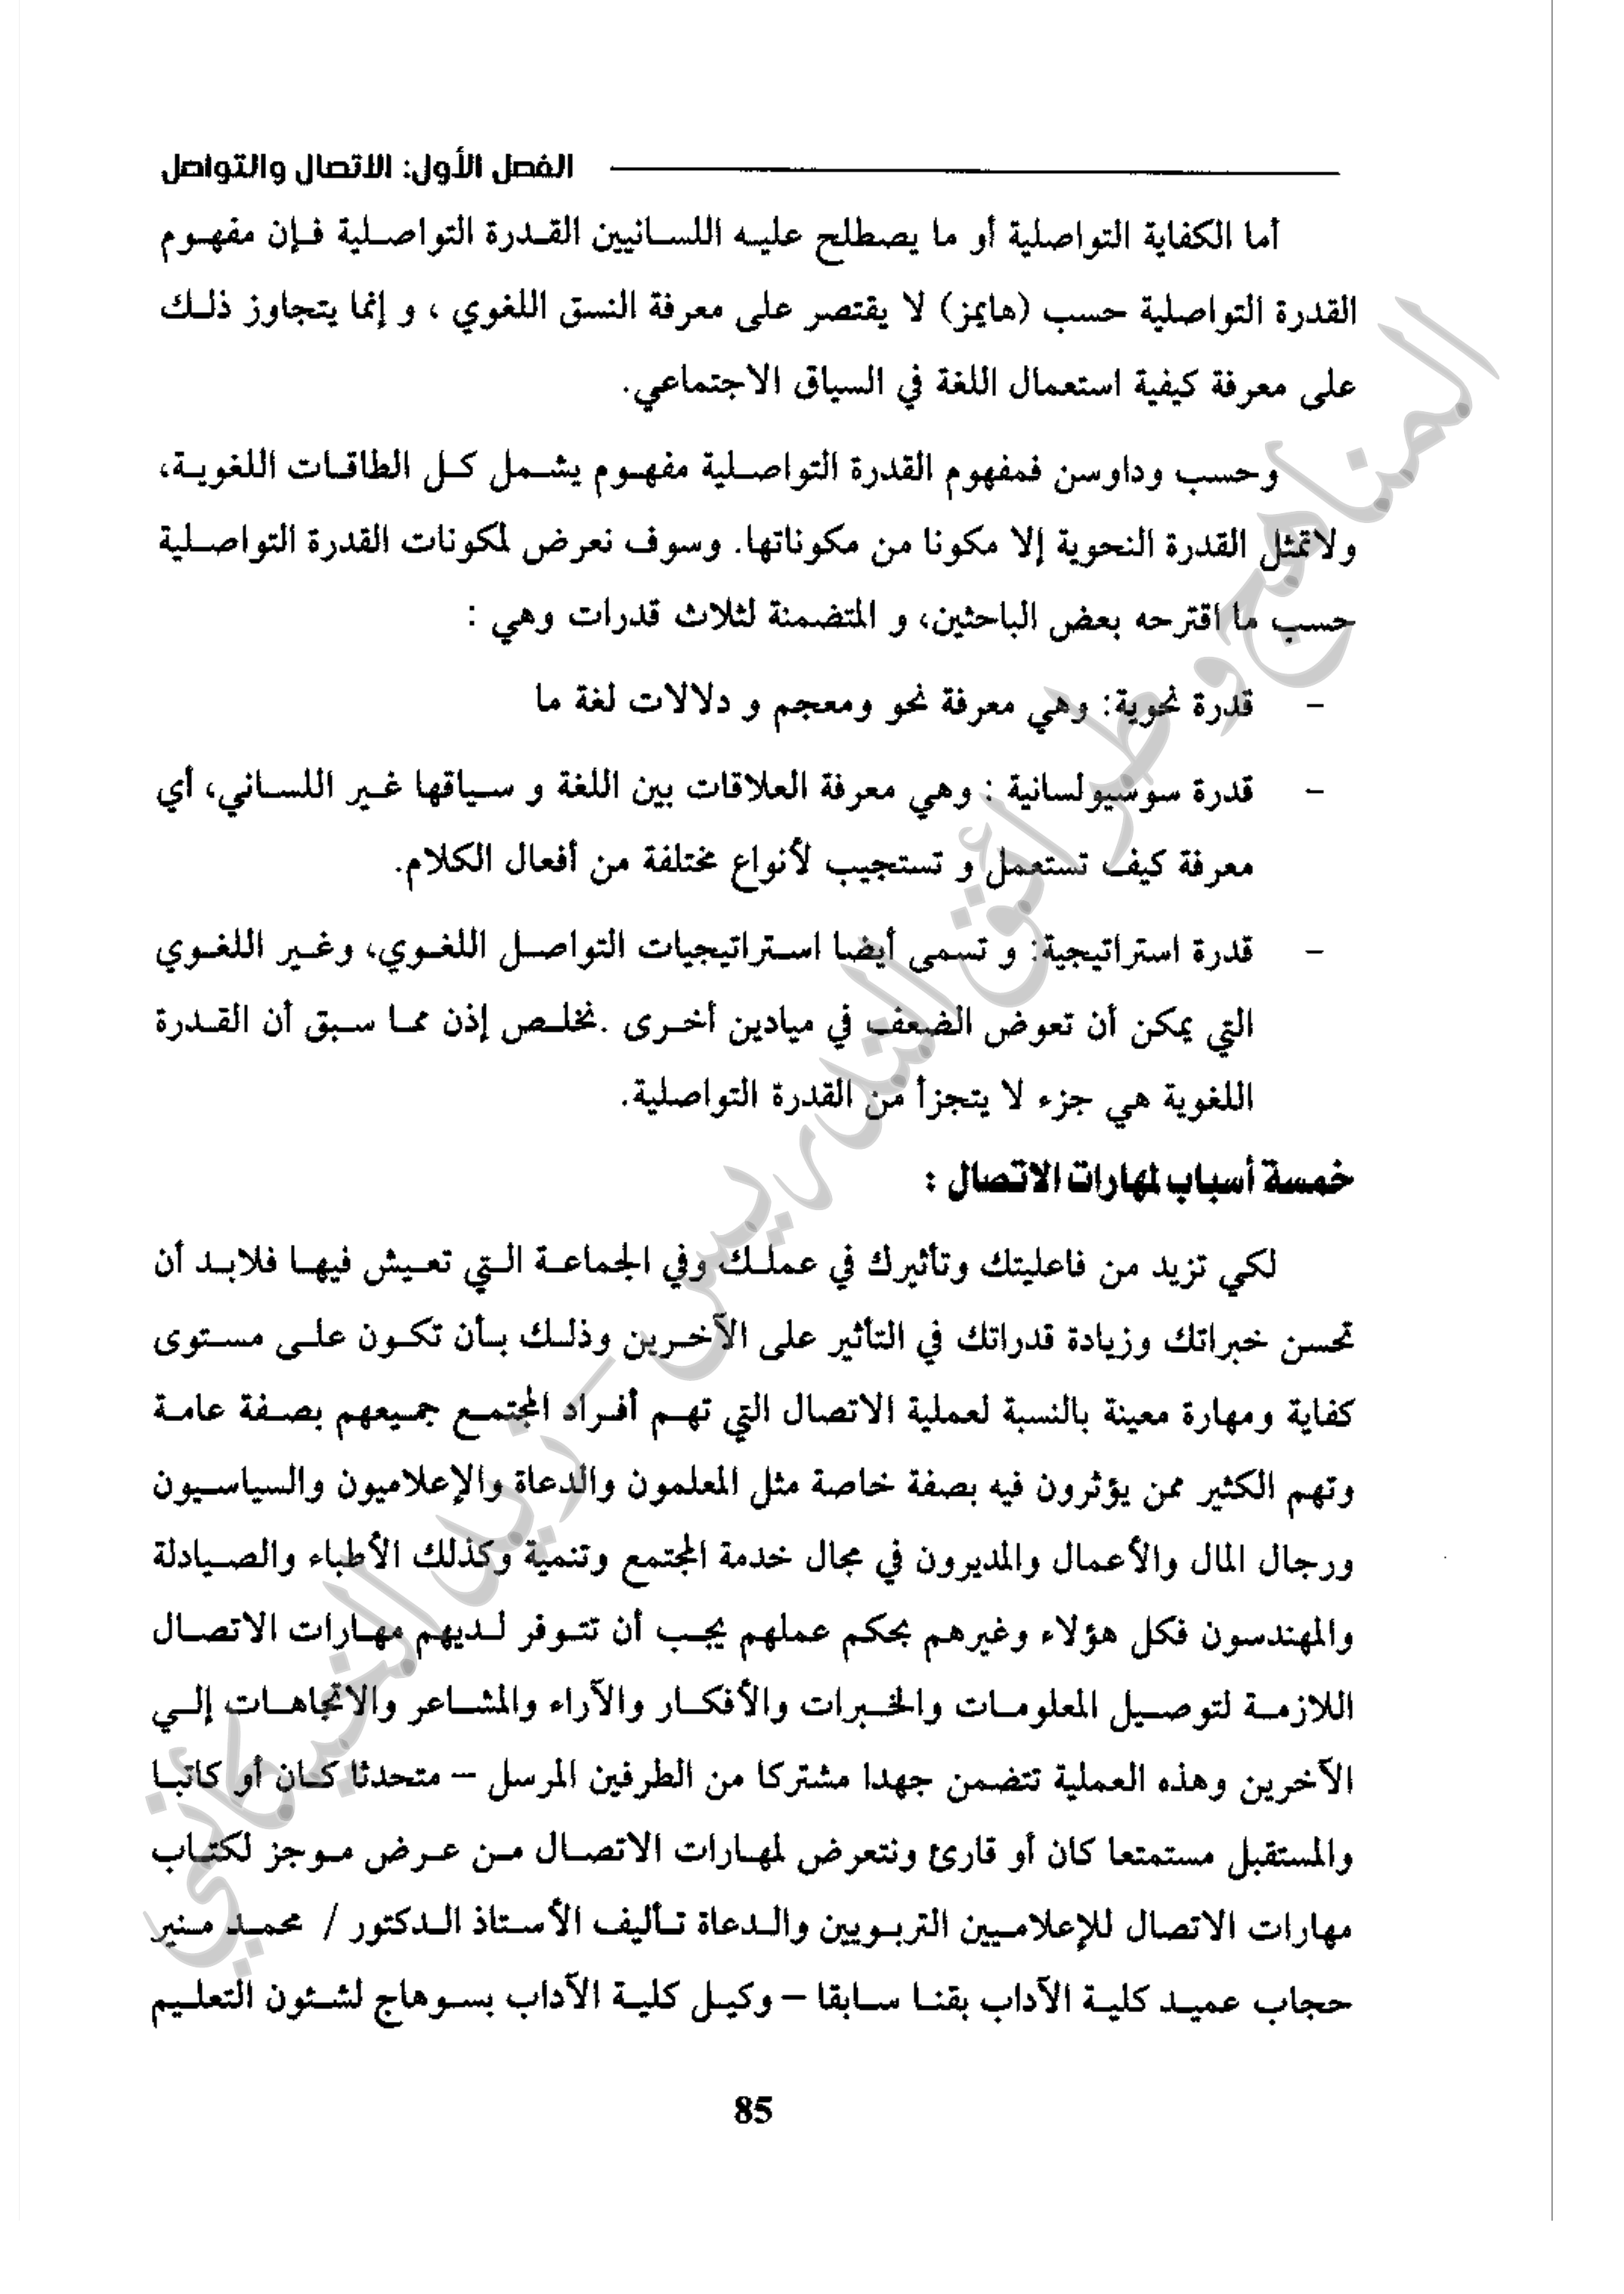 الفصل الأول: الاتصال والتواصل
أما الكفاية التواصلية أو ما يصطلح عليه اللسانيين القدرة التواصلية فإن مفهوم
القدرة التواصلية حسب (هايمز) لا يقتصر على معرفة النسق اللغوي ، و إنما يتجاوز ذلك
على معرفة كيفية استعمال اللغة في السياق الاجتماعي.
وحسب وداوسن فمفهوم القدرة التواصلية مفهوم يشمل كل الطاقات اللغوية،
ولاتمثل القدرة النحوية إلا مكونا من مكوناتها. وسوف نعرض لمكونات القدرة التواصلية
حسب ما اقترحه بعض الباحثين، و المتضمنة لثلاث قدرات وهي :
– قدرة نحوية: وهي معرفة نحو ومعجم و دلالات لغة ما
– قدرة سوسيولسانية : وهي معرفة العلاقات بين اللغة و سياقها غير اللساني، أي
معرفة كيف تستعمل و تستجيب لأنواع مختلفة من أفعال الكلام.
– قدرة استراتيجية: و تسمى أيضا استراتيجيات التواصل اللغوي، وغير اللغوي
التي يمكن أن تعوض الضعف في ميادين أخرى .نخلص إذن مما سبق أن القدرة
اللغوية هي جزء لا يتجزأ من القدرة التواصلية.
خمسة أسباب لمهارات الاتصال :
لكي تزيد من فاعليتك وتأثيرك في عملك وفي الجماعة التي تعيش فيها فلابد أن
تحسن خبراتك وزيادة قدراتك في التأثير على الآخرين وذلك بأن تكون على مستوى
كفاية ومهارة معينة بالنسبة لعملية الاتصال التي تهم أفراد المجتمع جميعهم بصفة عامة
وتهم الكثير ممن يؤثرون فيه بصفة خاصة مثل المعلمون والدعاة والإعلاميون والسياسيون
ورجال المال والأعمال والمديرون في مجال خدمة المجتمع وتنمية وكذلك الأطباء والصيادلة
والمهندسون فكل هؤلاء وغيرهم بحكم عملهم يجب أن تتوفر لديهم مهارات الاتصال
اللازمة لتوصيل المعلومات والخبرات والأفكار والآراء والمشاعر والاتجاهات إلي
الآخرين وهذه العملية تتضمن جهدا مشتركا من الطرفين المرسل – متحدثا كان أو كاتبا
والمستقبل مستمتعا كان أو قارئ ونتعرض لمهارات الاتصال من عرض موجز لكتاب
مهارات الاتصال للإعلاميين التربويين والدعاة تأليف الأستاذ الدكتور / محمد منير
حجاب عميد كلية الآداب بقنا سابقا – وكيل كلية الآداب بسوهاج لشئون التعليم
85
المناهج وطرائق التدريس - زيد الخيكاني